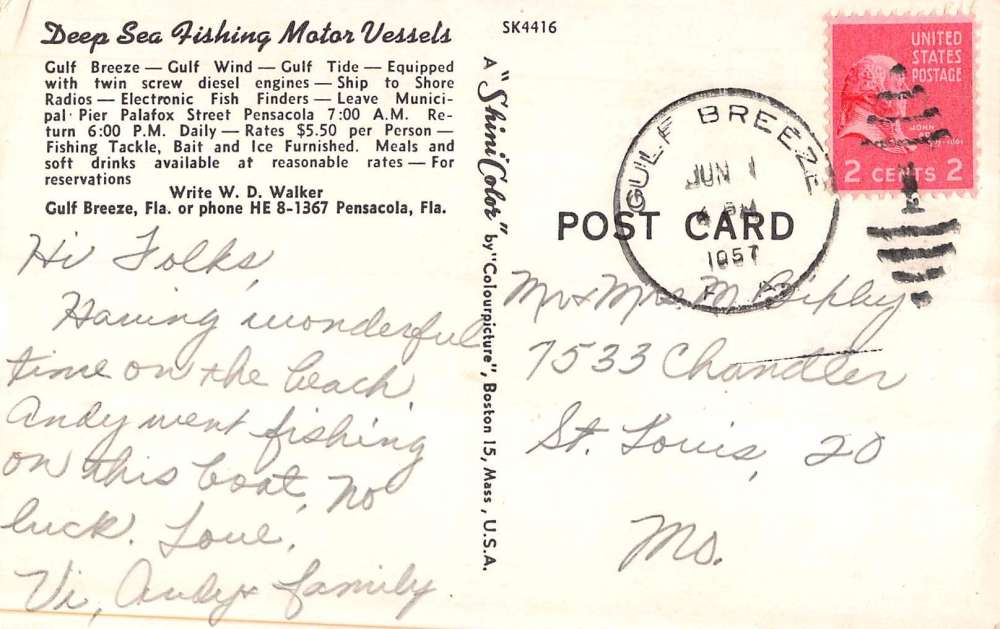 Deep Sea Fishing Motor Vessels
Gulf Breeze — Gulf Wind — Gulf Tide — Equipped
with twin screw diesel engines — Ship to Shore
Radios — Electronic Fish Finders — Leave Munici-
pal Pier Palafox Street Pensacola 7:00 A.M. Re-
turn 6:00 P.M. Daily — Rates $5.50 per Person —
Fishing Tackle, Bait and Ice Furnished. Meals and
soft drinks available at reasonable rates — For
reservations
Write W. D. Walker
Gulf Breeze, Fla. or phone HE 8-1367 Pensacola, Fla.
Hi Folks,
Having wonderful
time on the beach.
Andy went fishing
on this boat, no
luck. Love,
Vi, Andy + family.
A "ShiniColor" by "Colourpicture", Boston 15, Mass., U.S.A.
SK4416
UNITED
STATES
POSTAGE
JOHN
2 CENTS 2
GULF BREEZE
JUN 1
PM
1957
POST CARD
Mr + Mrs. M.
7533 Chandler
St. Louis, 20
Mo.